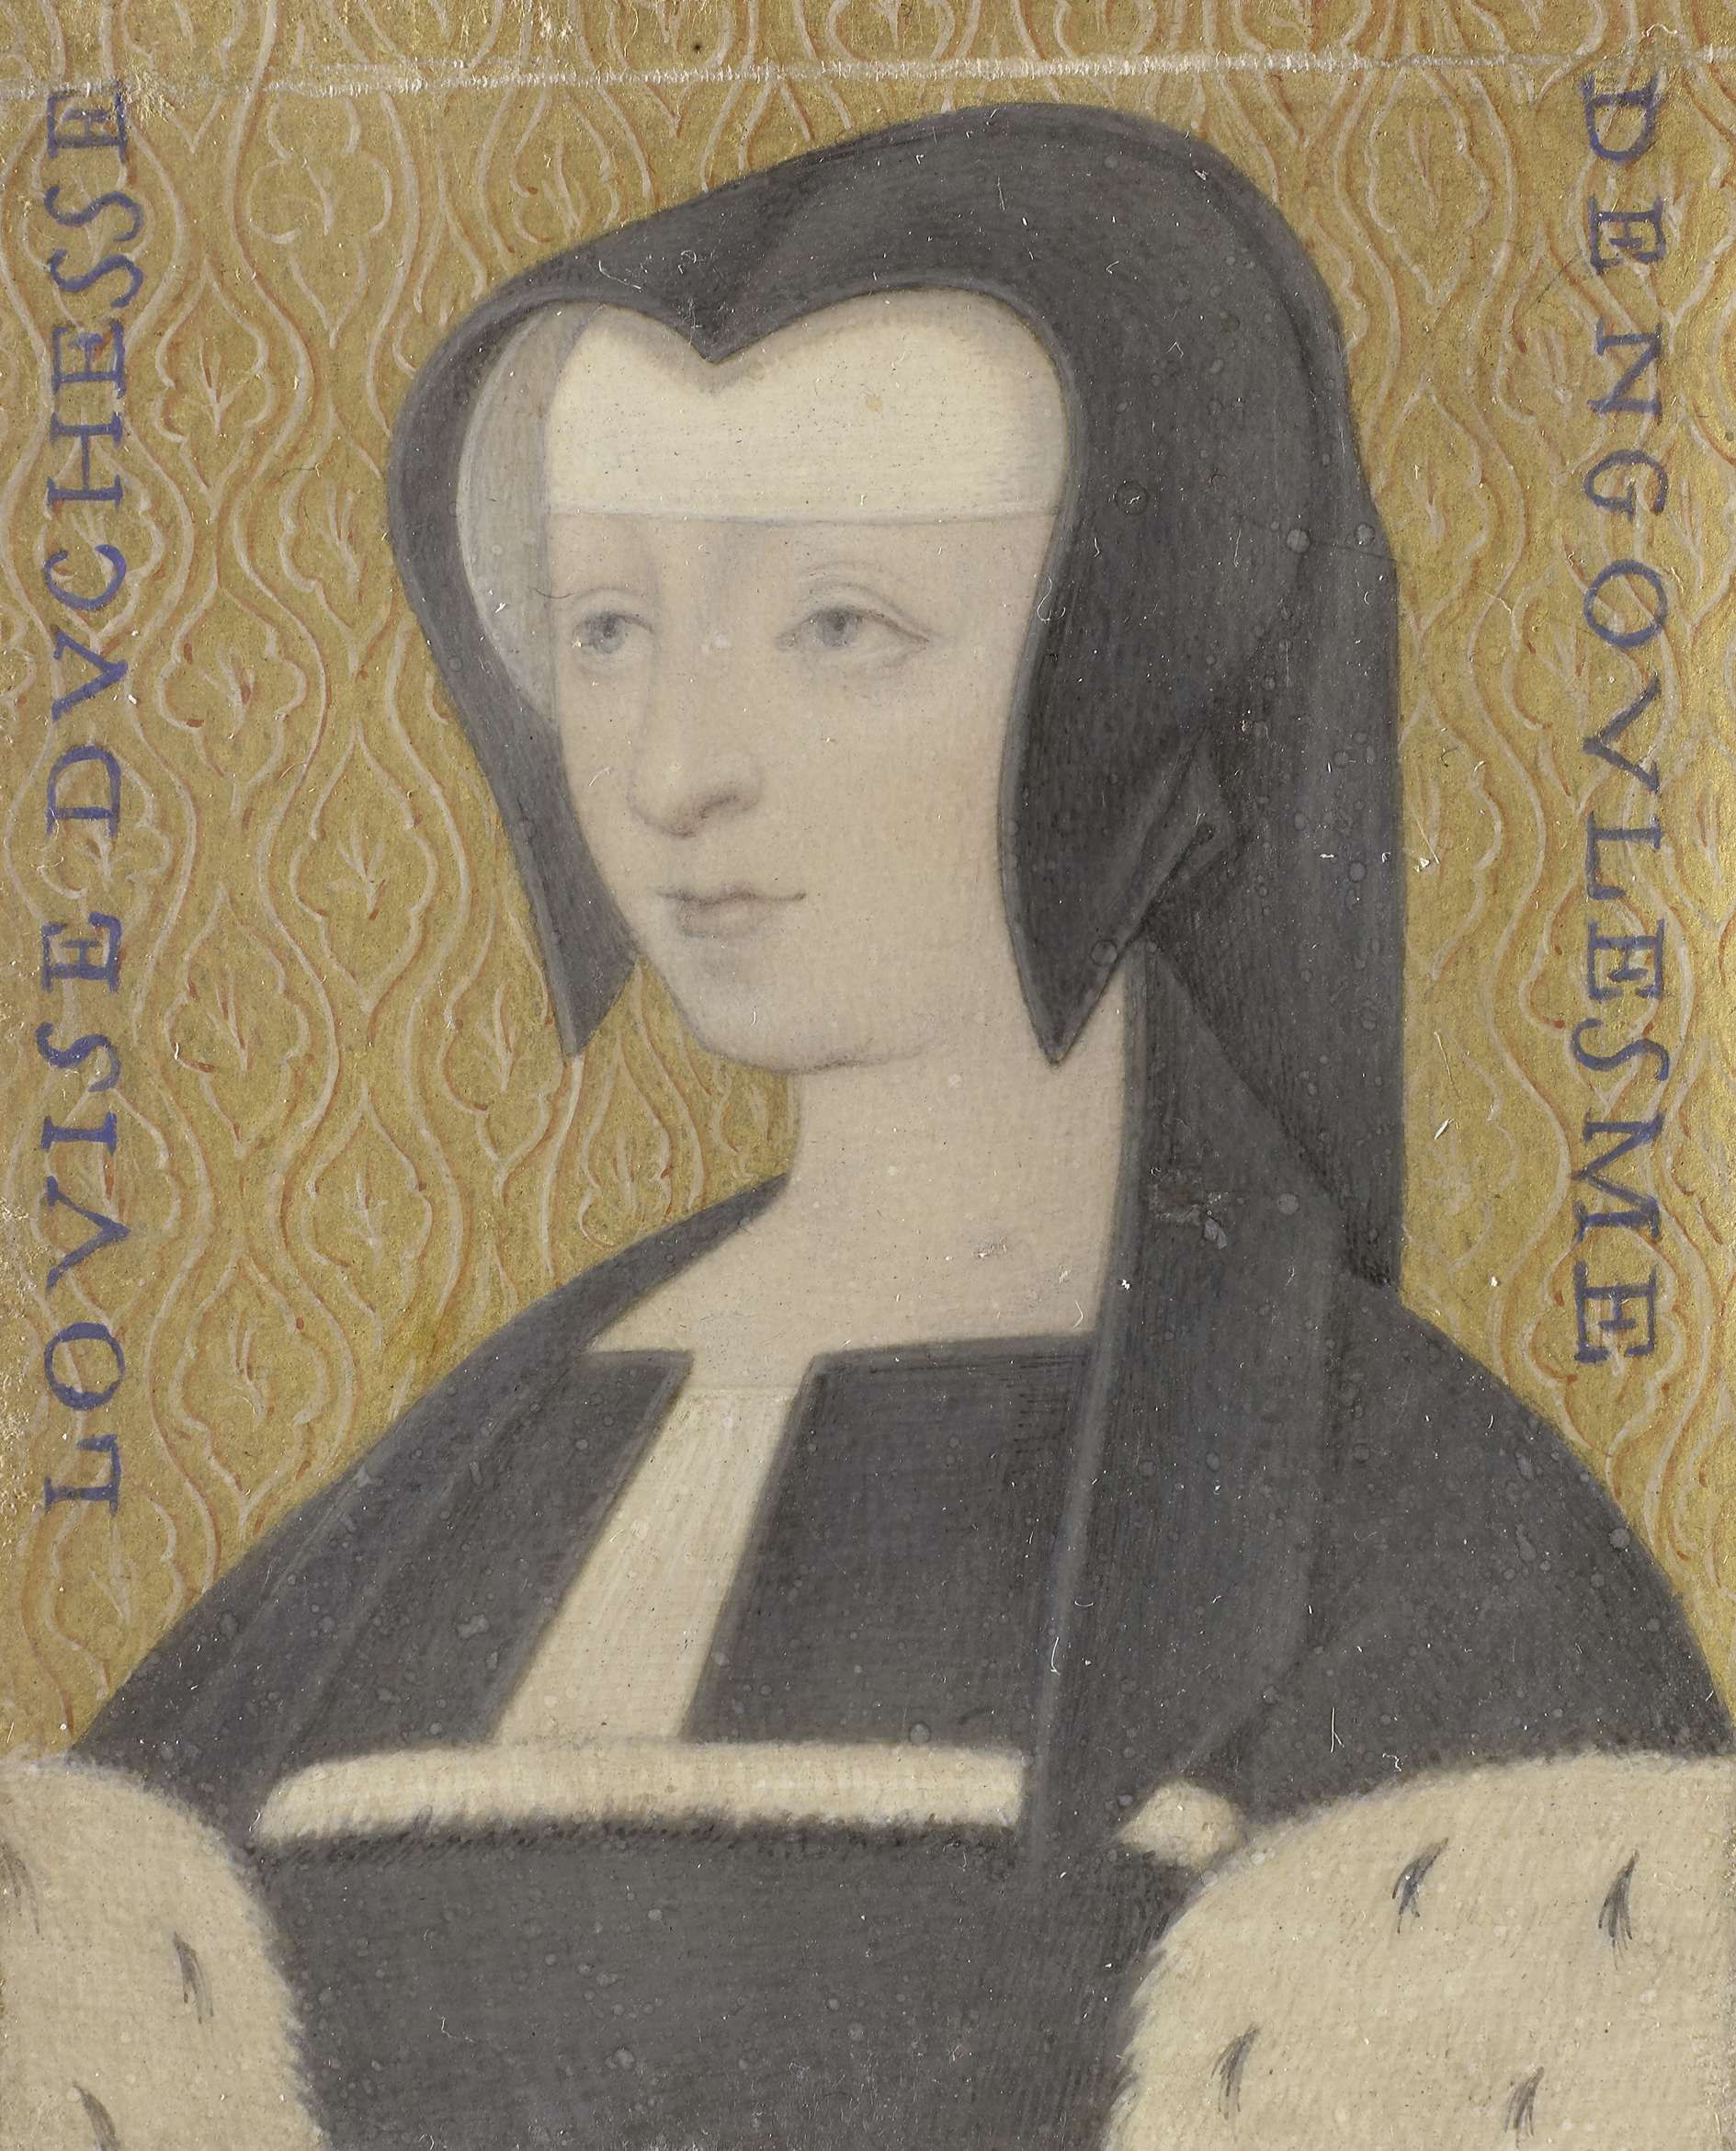 LOVISE DVCHESSE
DENGOVLESME